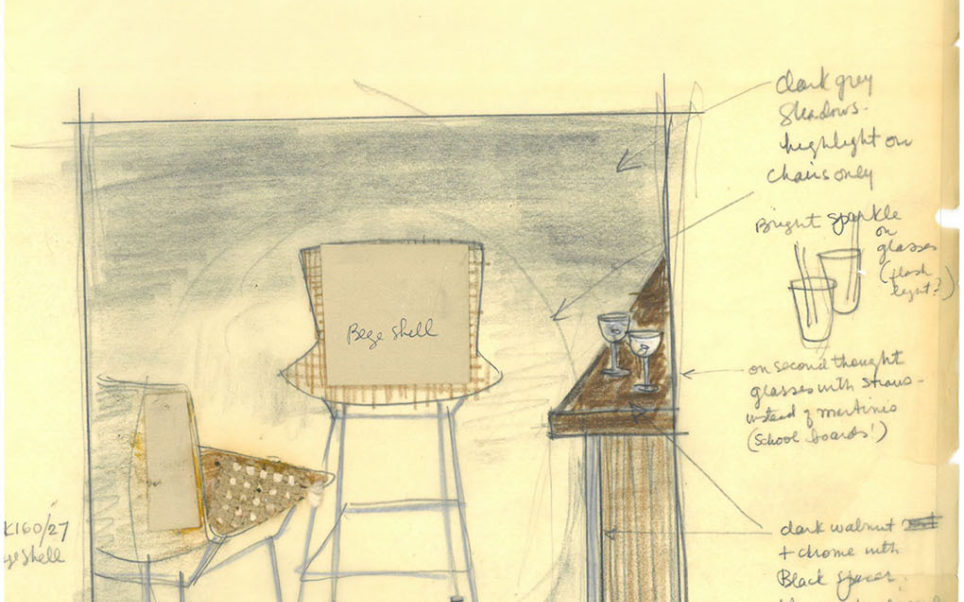 dark grey
shadows.
highlight on
chairs only
Bright sparkle
on
glasses
(flash
light?)
Bege shell
on second thought
glasses with straws -
instead of martinis
(School boards!)
K160/27
ge shell
dark walnut
+ chrome with
Black spacer.